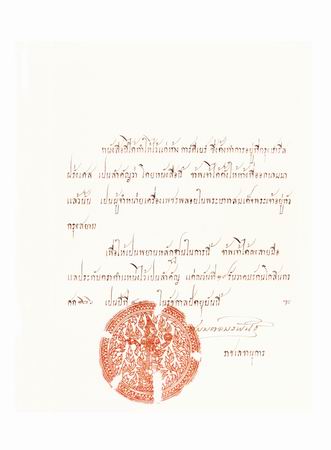 หนังสือนี้ได้ทำให้ไว้แก่ห้าง การ์ติเอร์ ซึ่งตั้งทำการอยู่ที่กรุง
ฝรั่งเศส เป็นสำคัญว่า โดยหนังสือนี้ ข้าพเจ้าได้ตั้งให้ห้างที่ออกนามมา
แล้วนั้น เป็นผู้จำหน่ายเครื่องเพชรพลอยในพระบาทสมเด็จพระเจ้าอยู่หัว
กรุงสยาม
เพื่อให้เป็นพยานหลักฐานในการนี้ ข้าพเจ้าได้ลงลายมือ
แลประทับตราตำแหน่งไว้เป็นสำคัญ แต่ณวันที่ รัตนโกสินทร
ศก เป็นปีที่ ในรัชกาลปัตยุบันนี้
ราชเลขานุการ